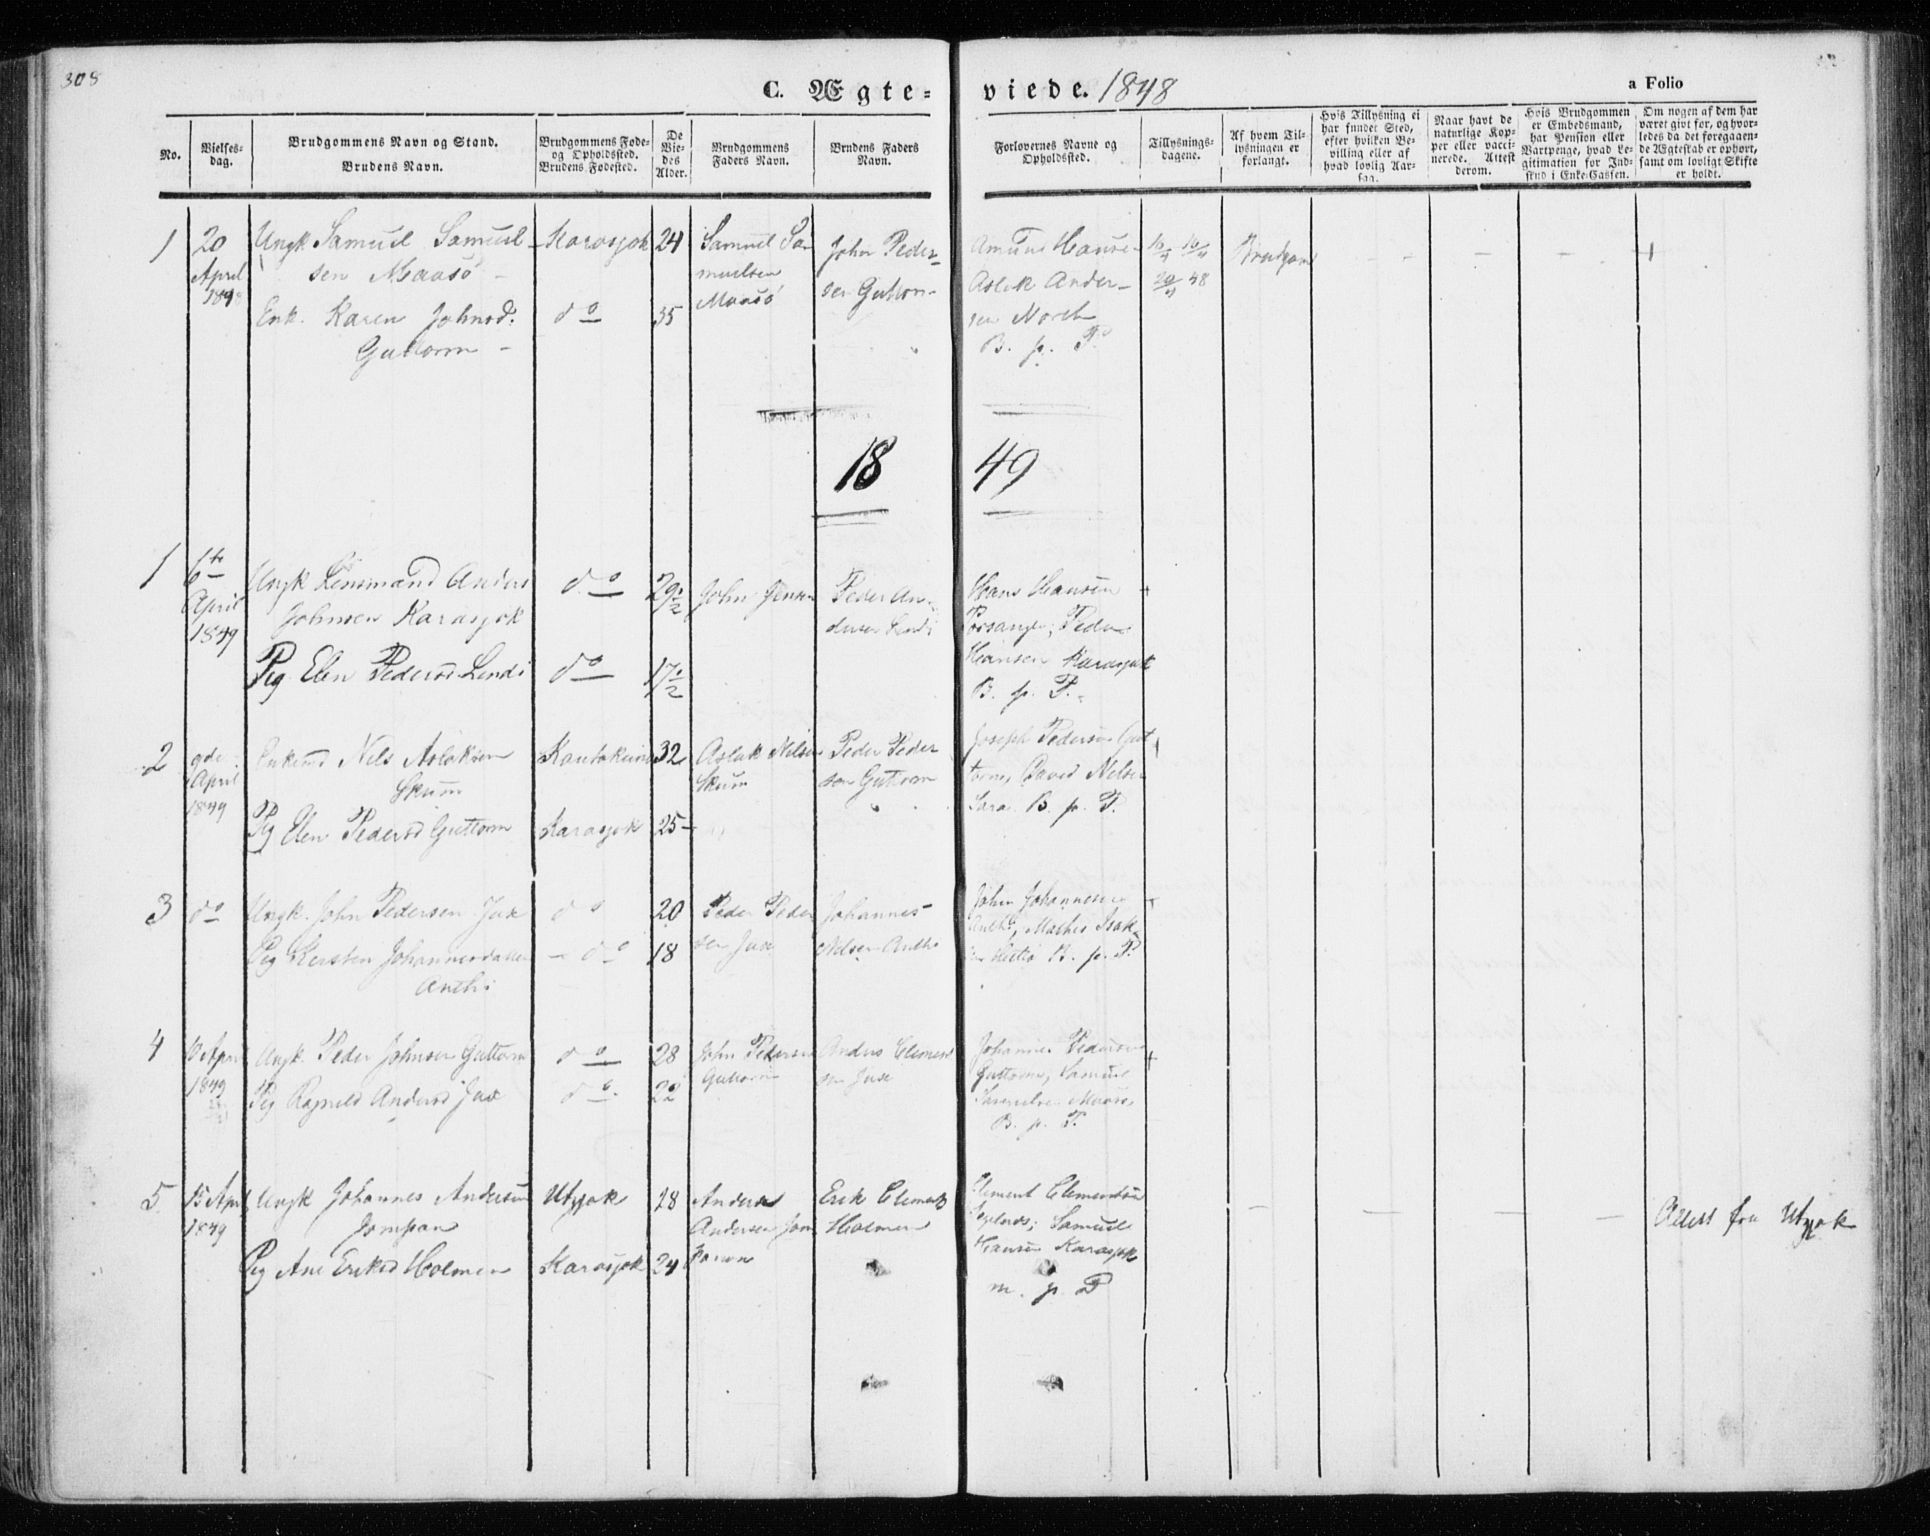 308
C. Ægte-
viede. 1848
a Folio
No.
Vielses-
dag.
Brudgommens Navn og Stand.
Brudens Navn.
Brudgommens Føde-
og Opholdssted.
Brudens Fødested.
De
Vie-
des
Alder.
Brudgommens
Faders Navn.
Brudens Faders
Navn.
Forlovernes Navne og
Opholdssted.
Tillysnings-
dagene.
Af hvem Til-
lysningen er
forlangt.
Hvis Tillysning ei
har fundet Sted,
efter hvilken Be-
villing eller af
hvad lovlig Aar-
sag.
Naar havt de
naturlige Kop-
per eller vacci-
nerede. Attest
derom.
Hvis Brudgommen
er Embedsmand,
har Pension eller
Vartpenge, hvad Le-
gitimation for Ind-
skud i Enke-Cassen.
Om nogen af dem har
været givt for, og hvor-
ledes da det foregaaen-
de Ægteskab er ophørt,
samt om lovligt Skifte
er holdt.
1
20
April
1848
Ungk Samuel Samuel-
sen Maasø
Enk. Karen Johnsd.
Guttorm
Karasjok
do
24
35
Samuel Sa-
muelsen
Maasø
John Peder-
sen Guttorm
Amund Hansen
Aslak Ander-
sen North
B. p. T.
16/4 16/4
20/4 48
Brudgom
18 49
1
6te
April
1849
Ungk Lensmand Anders
Johnsen Karasjok
Pig Elen Pedersd Lendi
do
do
29 1/2
17 1/2
John Jensen
Peder An-
dersen Lendi
Hans Hansen
Porsanger, Peder
Hansen Karasjok
B. p. T.
2
9de
April
1849
Enkemd Nils Aslaksen
Skum
Pig Elen Pedersd Guttorm
Kautokeino
Karasjok
32
25
Aslak Nilsen
Skum
Peder Peder
sen Guttorm
Joseph Pedersen Gut
torm, David Nilsen
Sara B. p. T.
3
do
Ungk. John Pedersen Jux
Pig Kersten Johannesdatter
Anthi
do
do
20
18
Peder Peder
sen Jux
Johannes
Nilsen Anthi
John Johannesen
Anthi, Mathis Isak-
B. p. T.
4
10 April
1849
Ungk Peder Johnsen Guttorm
Pig Ragnild Andersd Jux
do
do
28
22
John Pedersen
Guttorm
Anders Clement
sen Jux
Johannes Pedersen
Guttorm, Samuel
Samuelsen Maasø
B. p. T.
5
15 April
1849
Ungk Johannes Andersen
Jompan
Pig Ane Eriksd Holmen
Utsjok
Karasjok
28
24
Anders
Andersen Jom
panen
Erik Clements
Holmen
Clement Clementsen
Samuel
Hansen Karasjok
m. p. T
Attest fra Utsjok